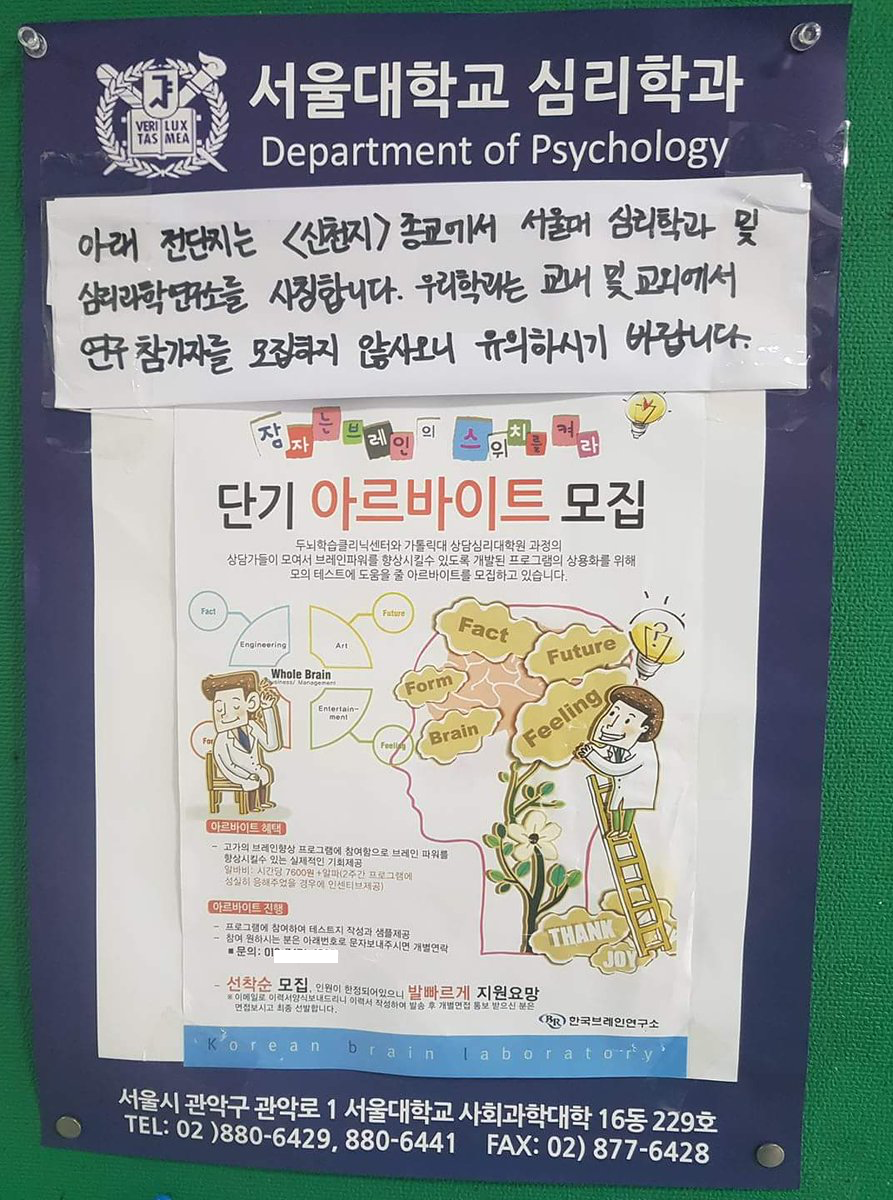 서울대학교 심리학과
VERI LUX
TAS MEA
Department of Psychology
아래 전단지는 <신천지> 종교에서 서울대 심리학과 및
심리과학연구소를 사칭합니다. 우리학과는 교내 및 교외에서
연구 참가자를 모집하지 않사오니 유의하시기 바랍니다.
잠자는브레인의 스위치를켜라
단기 아르바이트 모집
두뇌학습클리닉센터와 가톨릭대 상담심리대학원 과정의
상담가들이 모여서 브레인파워를 향상시킬수 있도록 개발된 프로그램의 상용화를 위해
모의 테스트에 도움을 줄 아르바이트를 모집하고 있습니다.
Fact
Future
Engineering
Art
Whole Brain
Business/ Management
Entertain-
ment
For
Feeling
Fact
Future
Form
Feeling
Brain
THANK
JOY
아르바이트 혜택
- 고가의 브레인향상 프로그램에 참여함으로 브레인 파워를
향상시킬수 있는 실제적인 기회제공
알바비: 시간당 7600원+알파(2주간 프로그램에
성실히 응해주었을 경우에 인센티브제공)
아르바이트 진행
- 프로그램에 참여하여 테스트지 작성과 샘플제공
- 참여 원하시는 분은 아래번호로 문자보내주시면 개별연락
■ 문의:
- 선착순 모집, 인원이 한정되어있으니 발빠르게 지원요망
※ 이메일로 이력서양식보내드리니 이력서 작성하여 발송 후 개별면접 통보 받으신 분은
면접보시고 최종 선발합니다.
BR 한국브레인연구소
'Korean brain laboratory'
서울시 관악구 관악로 1 서울대학교 사회과학대학 16동 229호
TEL: 02 )880-6429, 880-6441 FAX: 02) 877-6428